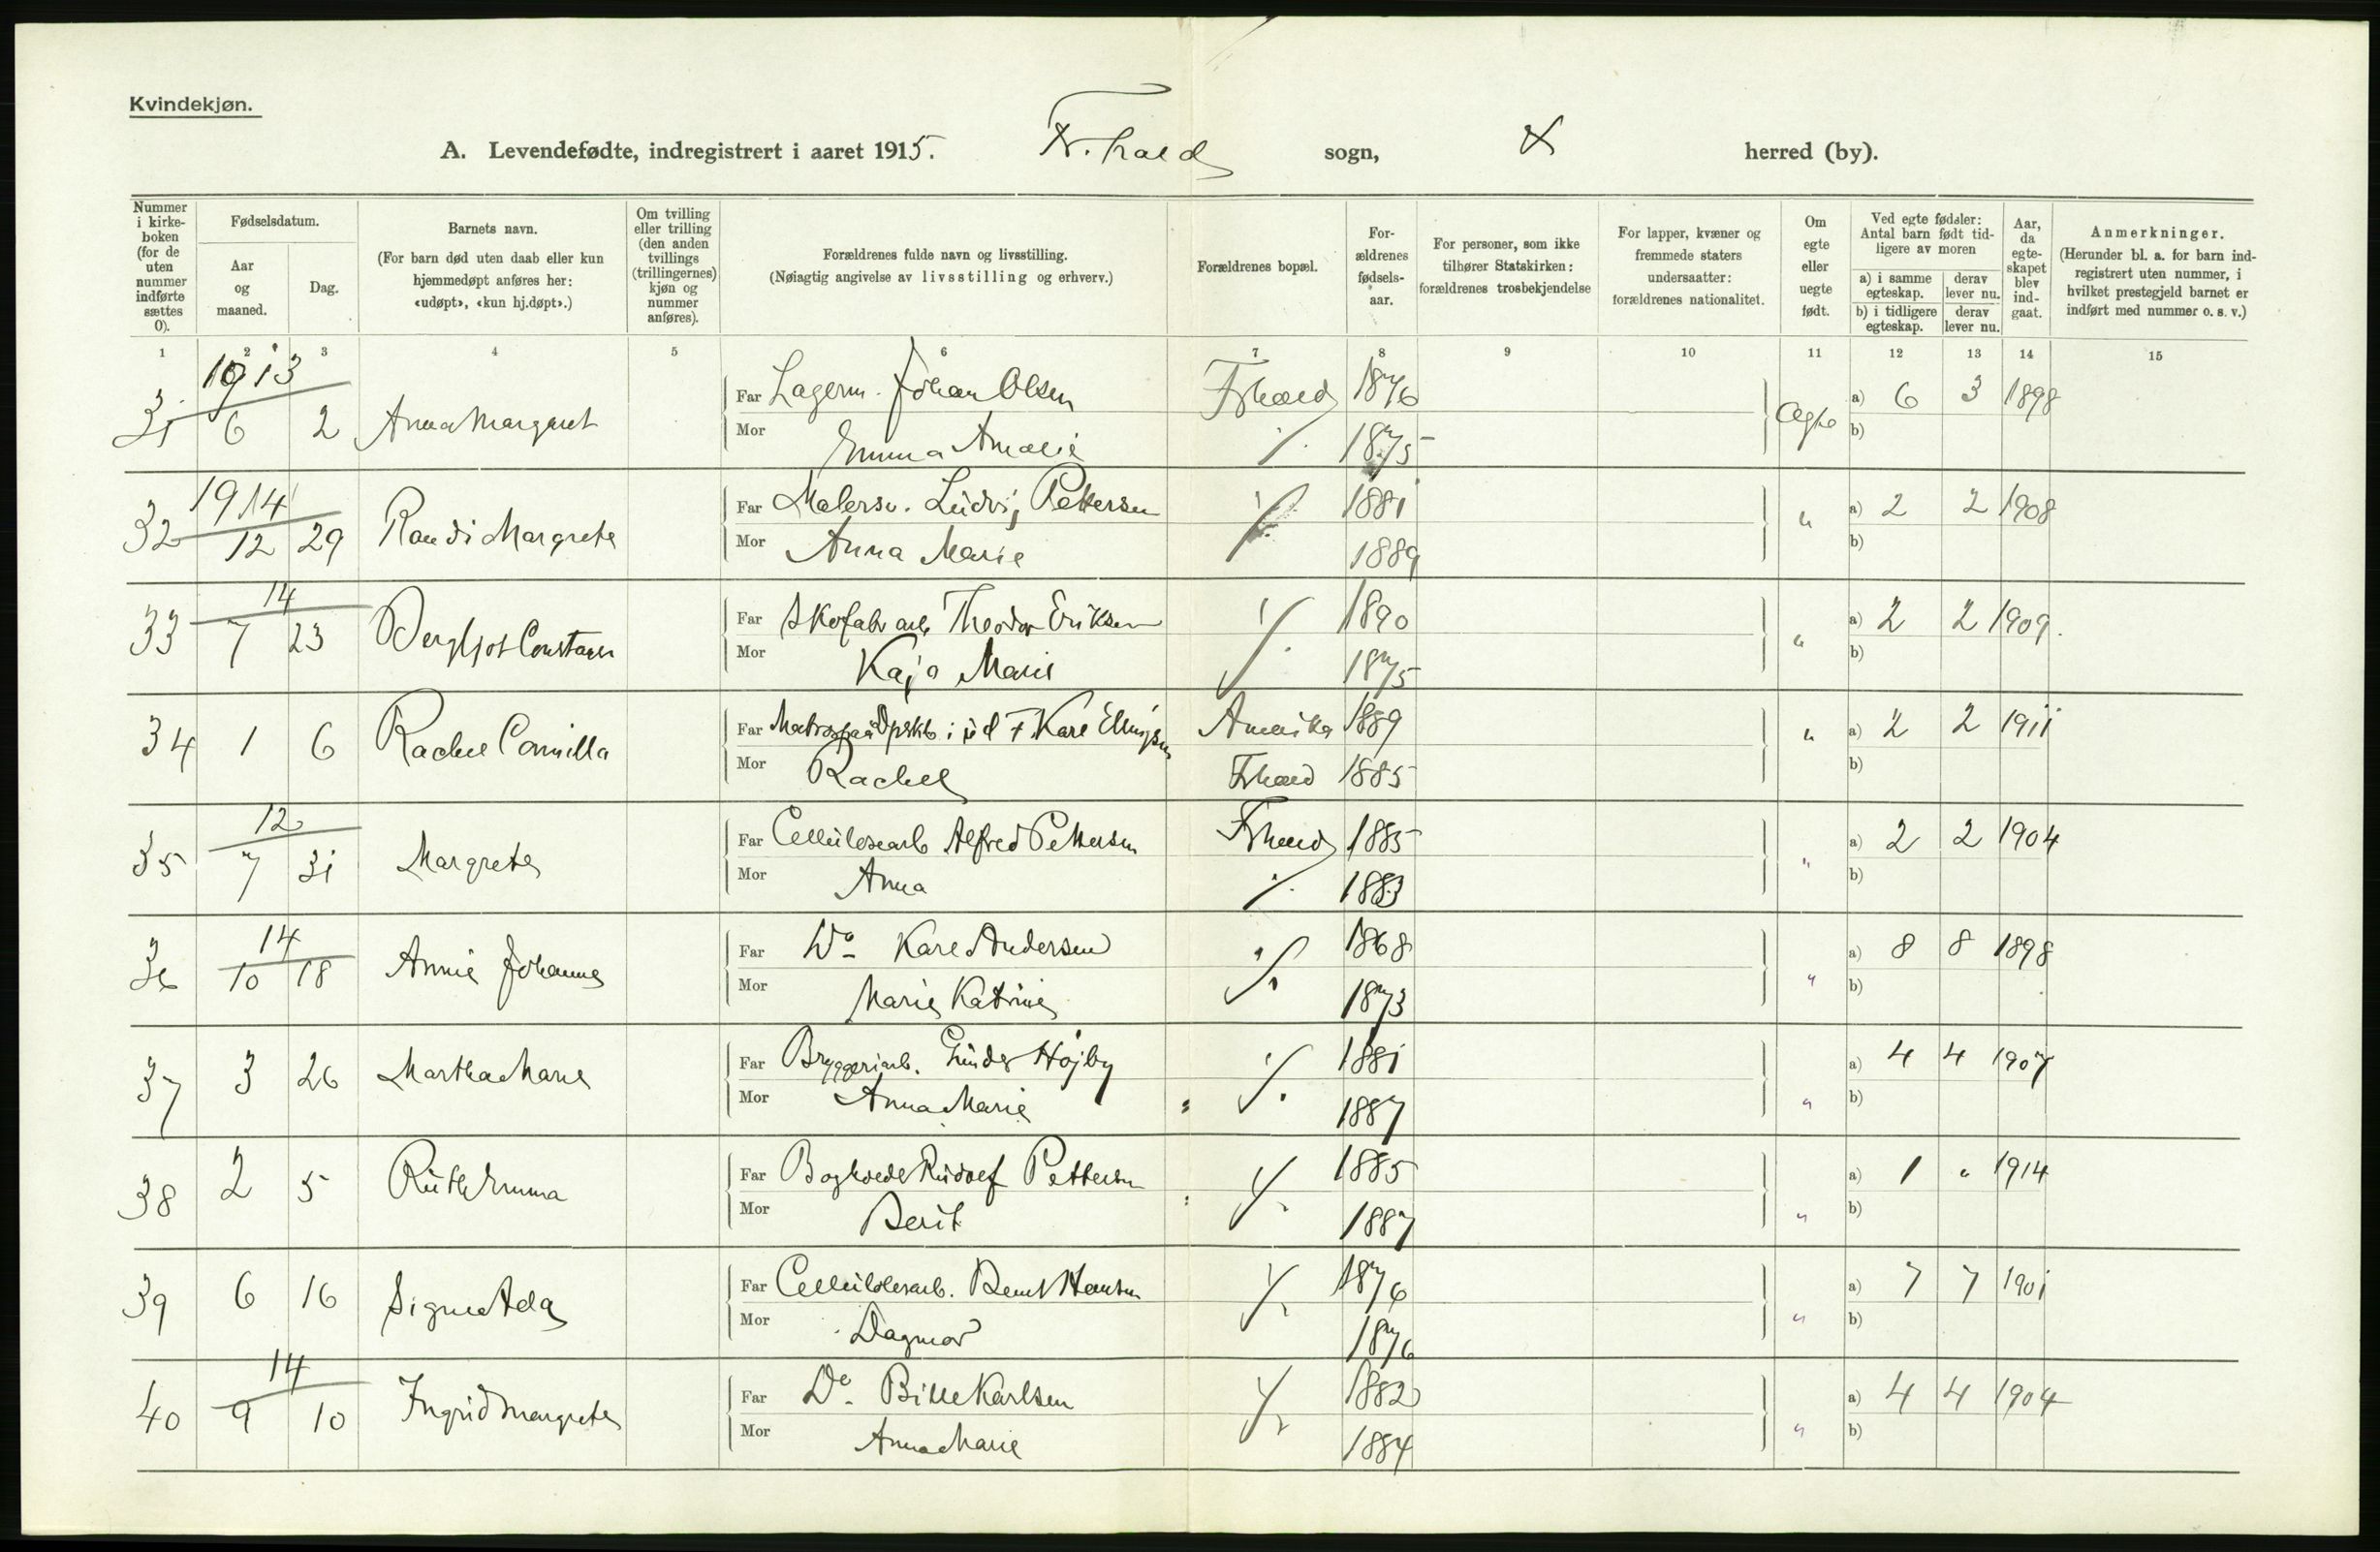 Kvindekjøn.
A. Levendefødte, indregistrert i aaret 1915. Fr.hald sogn, herred (by).
Nummer i kirke-boken (for de uten nummer indførte sættes 0).
Fødselsdatum.
Aar og maaned.
Dag.
Barnets navn.
(For barn død uten daab eller kun hjemmedøpt anføres her: «udøpt», «kun hj.døpt».)
Om tvilling eller trilling (den anden tvillings (trillingernes) kjøn og nummer anføres).
Forældrenes fulde navn og livsstilling.
(Nøiagtig angivelse av livsstilling og erhverv.)
Forældrenes bopæl.
For-ældrenes fødsels-aar.
For personer, som ikke tilhører Statskirken: forældrenes trosbekjendelse
For lapper, kvæner og fremmede staters undersaatter: forældrenes nationalitet.
Om egte eller uegte født.
Ved egte fødsler: Antal barn født tid-ligere av moren
a) i samme egteskap.
derav lever nu.
b) i tidligere egteskap.
derav lever nu.
Aar, da egte-skapet blev ind-gaat.
Anmerkninger.
(Herunder bl. a. for barn ind-registrert uten nummer, i hvilket prestegjeld barnet er indført med nummer o. s. v.)
1 2 3 4 5 6 7 8 9 10 11 12 13 14 15
1913
31 6 2 Anna Margaret Far Lagerm. Johan Olsen Frhald 1876 Egte a) 6 3 1898
Mor Emma Amalie 1875 b)
1914
32 12 29 Randi Margrete Far Malersv. Ludvig Pettersen 1881 " a) 2 2 1908
Mor Anna Marie 1889 b)
14
33 7 23 Bergljot Constance Far Skofabr arb Theodor Eriksen 1890 " a) 2 2 1909.
Mor Kaja Marie 1875 b)
34 1 6 Rachel Camilla Far Matros paa i Karl Ellingsen Amerika 1889 " a) 2 2 1911
Mor Rachel Frhald 1885 b)
12
35 7 31 Margrete Far Cellulosearb Alfred Pettersen Frhald 1885 " a) 2 2 1904
Mor Anna 1883 b)
14
36 10 18 Annie Johanne Far Do Karl Andersen 1868 " a) 8 8 1898
Mor Marie Katrine 1873 b)
37 3 26 Martha Marie Far Bryggeriarb. Højby 1881 a) 4 4 1907
Mor Anna Marie 1887 " b)
38 2 5 Ruth Emma Far Rudolf Pettersen 1885 a) 1 " 1914
Mor Berit 1887 " b)
39 6 16 Signe Ada Far Cellulosearb. Bernt Hansen 1876 a) 7 7 1901
Mor Dagmar 1876 " b)
14
40 9 10 Ingrid Margrete Far Do Bille Karlsen 1882 a) 4 4 1904
Mor Anna Marie 1884 " b)